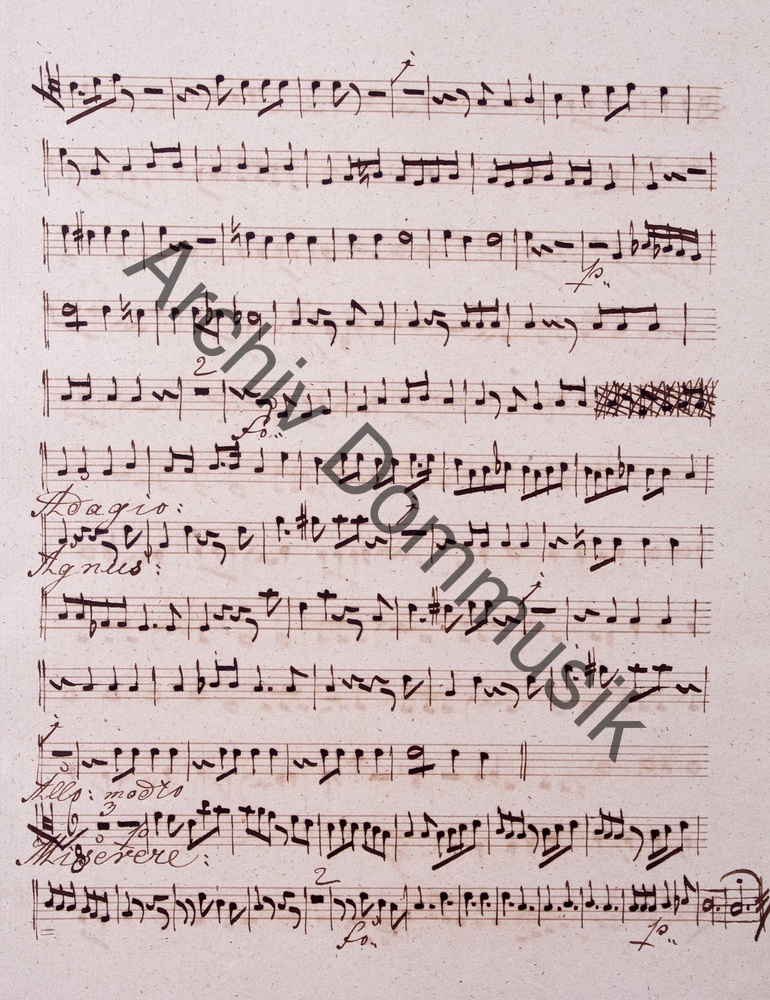 1
p:
2
fo:
Adagio:
3
2
Agnus:
1
1
Allo: modto
3
6
8
3
p
Miserere:
2
fo:
p:
Archiv Dommusik